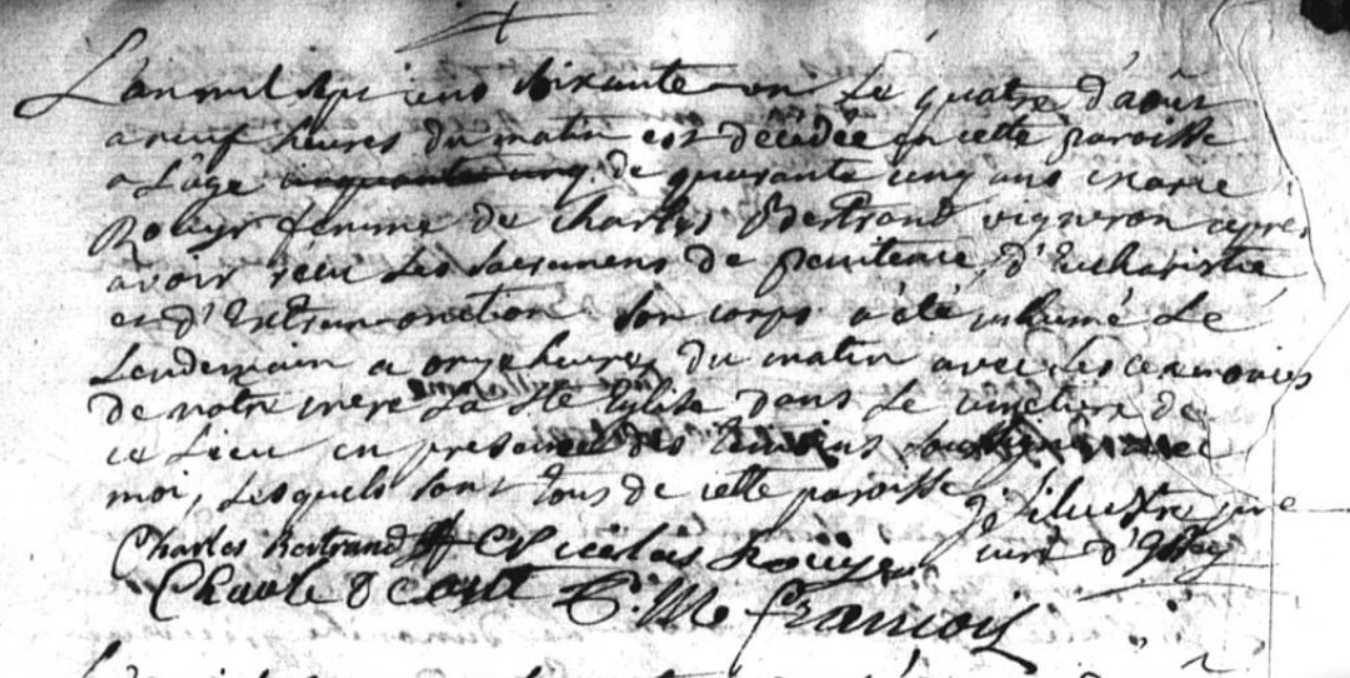 L'an mil sept cens soixante-on Le quatre d'août
a neuf heures du matin est décédée en cette paroisse
a L'âge cinquante cinq de quarante cinq ans marie
Rouyr femme de charles Bertrand vigneron apres
avoir reçu Les Sacremens de penitence, d'Eucharistie
et d'Extrem-onction Son corps a été inhumé Le
Lendemain a onze heures du matin avec Les ceremonies
de notre mere La Ste Eglise dans Le cimetiere de
ce Lieu en presence des temoins soussignés avec
moi, Lesquels sont tous de cette paroisse
Charles Bertrand Nicolas Rouyer curé
Charle François